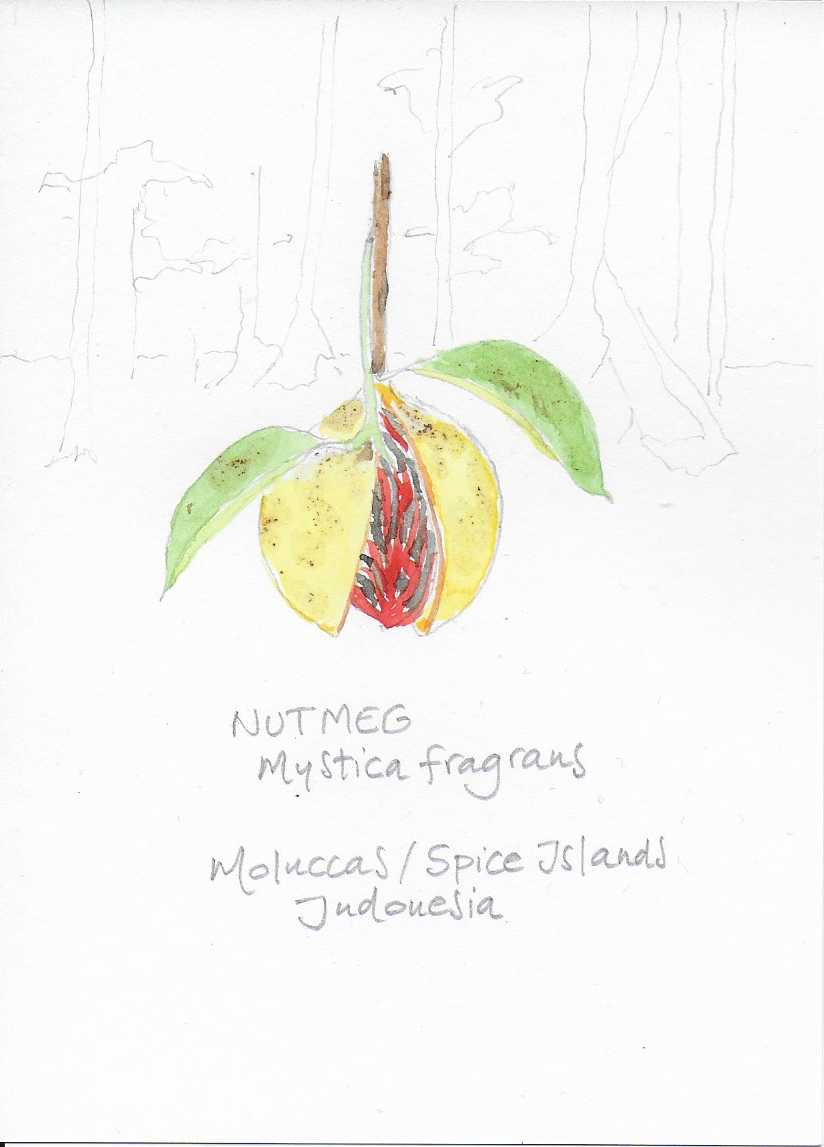 NUTMEG
Mystica fragrans
Moluccas / Spice Islands
Indonesia